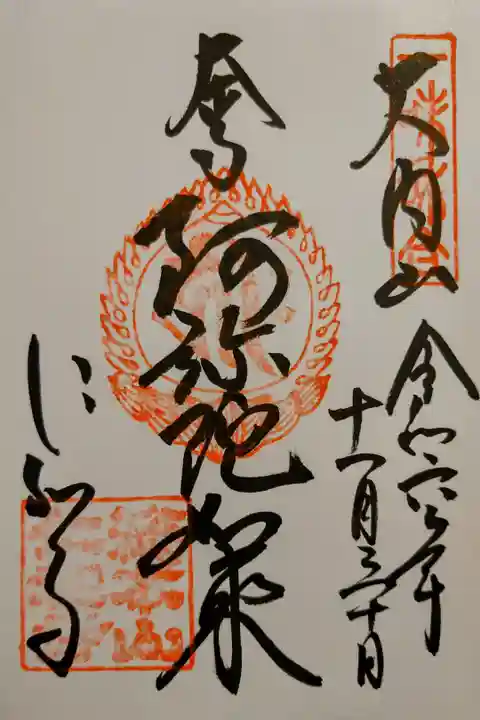 大内山
令和六年
十一月三十日
奉
阿弥陀如来
仁和寺